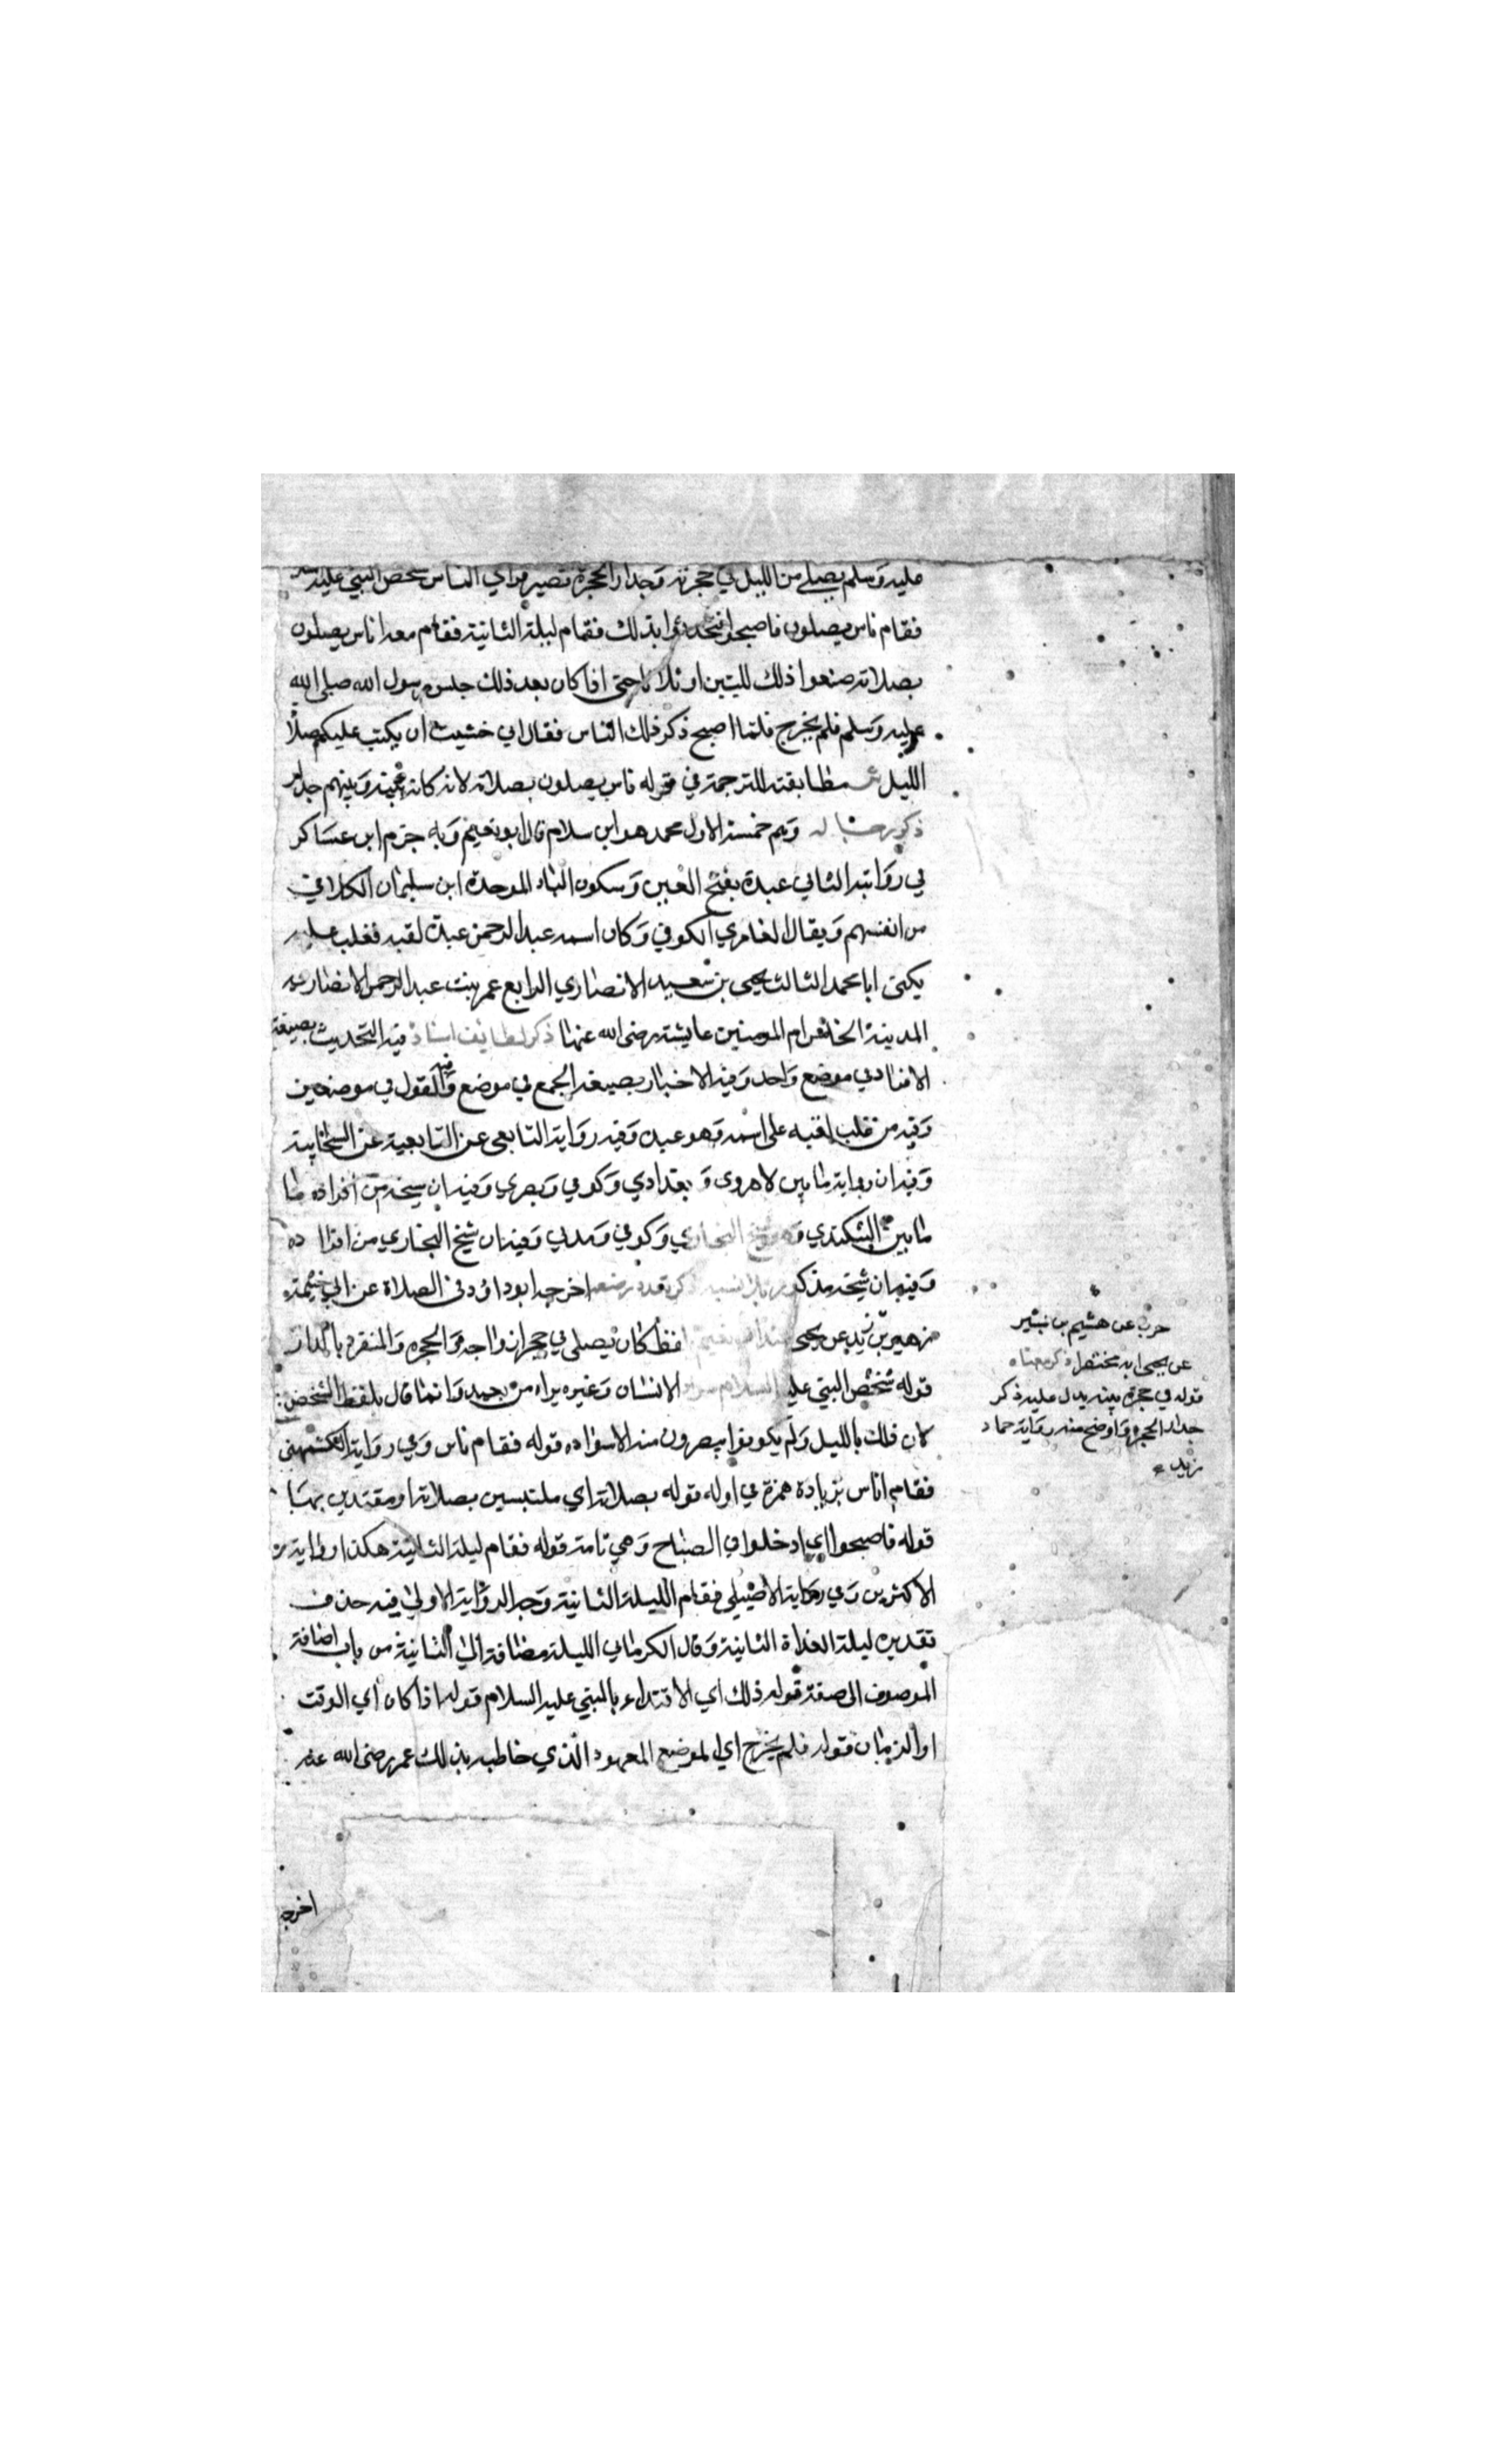 عليه وسلم يصلي من الليل في حجرته وجدار الحجرة قصير فراي الناس شخص النبي عليه
فقام ناس يصلون فاصبحوا فتحدثوا بذلك فقام ليلة الثانية فقام معه اناس يصلون
بصلاته صنعوا ذلك ليلتين او ثلاثا حتى اذا كان بعد ذلك جلس رسول الله صلى الله
عليه وسلم فلم يخرج فلما اصبح ذكر ذلك الناس فقال اني خشيت ان يكتب عليكم صلاة
الليل مطابقته للترجمة في قوله ناس يصلون بصلاته لانه كان بينه وبينهم جدار
ذكر رجاله وهم خمسة الاول محمد هو ابن سلام قال ابو نعيم وبه جزم ابن عساكر
في روايته الثاني عبدة بفتح العين وسكون الباء الموحدة ابن سليمان الكلابي
من انفسهم ويقال العامري الكوفي وكان اسمه عبد الرحمن عبدة لقبه فغلب عليه
يكنى ابا محمد الثالث يحيى بن سعيد الانصاري الرابع عمرة بنت عبد الرحمن الانصارية
المدينة الخامس ام المومنين عايشة رضى الله عنها ذكر لطايف اسناده فيه التحديث بصيغة
الافراد في موضع واحد وفيه الاخبار بصيغة الجمع في موضع وفيه القول في موضعين
وفيه من غلب لقبه على اسمه وهو عبدة وفيه رواية التابعي عن التابعية عن الصحابية
وفيه ان رواية ما بين لاهروى وبغدادي وكوفي وبصري وفيه ان شيخه من افراده ما
ما بين البيكندي وهو شيخ البخاري وكوفي ومدني وفيه ان شيخ البخاري من افراده
وفيه ان شيخه مذكور بلا نسبة ذكر تعدد موضعه اخرجه ابو داود في الصلاة عن ابي خيثمة
زهير بن زيد عن يحيى عند ابي نعيم لفظ كان يصلي في حجرة من حجر ازواجه والحجرة والمنفرد بالدار
قوله شخص النبي عليه السلام سواد الانسان وغيره يراه من بعيد وانما قال بلفظ الشخص
لان ذلك بالليل ولم يكونوا يبصرون منه الا سواده قوله فقام ناس وفي رواية الكشمهني
فقام اناس بزيادة همزة في اوله قوله بصلاته اي ملتبسين بصلاته او مقتدين بها
قوله فاصبحوا اي ادخلوا في الصباح وهي تامة قوله فقام ليلة الثانية هكذا رواية
الاكثرين وفي رواية الاصيلي فقام الليلة الثانية وجه الرواية الاولى فيه حذف
تقديره ليلة الغداة الثانية وقال الكرماني الليلة مضافة الى الثانية من باب اضافة
الموصوف الى صفته قوله ذلك اي الاقتداء بالنبي عليه السلام قوله اذا كان اي الوقت
او الزمان قوله فلم يخرج اي لموضع المعهود الذي خاطبه بذلك عمر رضى الله عنه
اخرجه
حرب عن هشيم بن بشير
عن يحيى به مختصرا ذكر معناه
قوله في حجرة بيته يدل عليه ذكر
جدار الحجرة واوضح منه رواية حماد
زيد